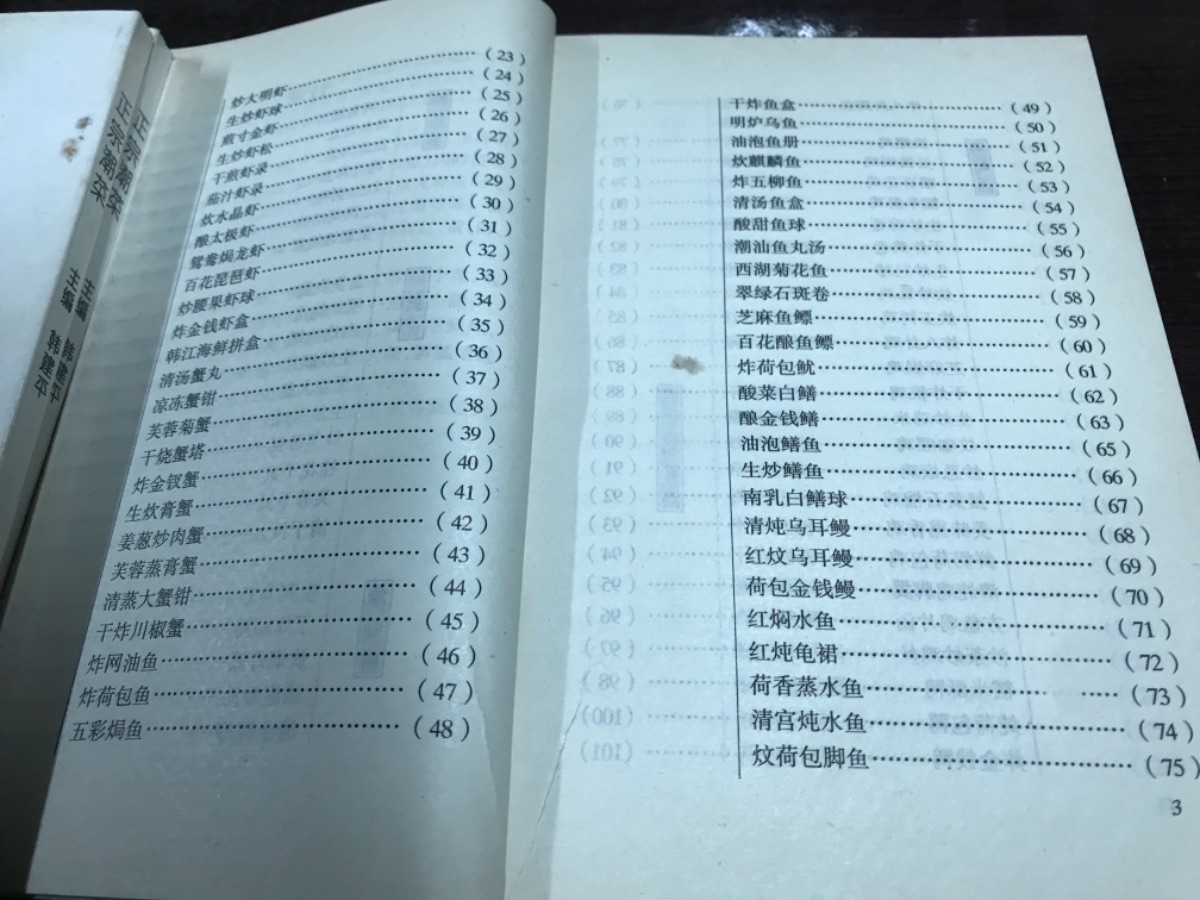 正宗潮菜 主编 韩建平
正宗潮菜 主编 韩建平
炒大明虾……………………(23)
生炒虾球……………………(24)
煎寸金虾……………………(25)
生炒虾松……………………(26)
干煎虾录……………………(27)
茄汁虾录……………………(28)
炊水晶虾……………………(29)
酿太极虾……………………(30)
鸳鸯焗龙虾……………………(31)
百花琵琶虾……………………(32)
炒腰果虾球……………………(33)
炸金钱虾盒……………………(34)
韩江海鲜拼盒……………………(35)
清汤蟹丸……………………(36)
凉冻蟹钳……………………(37)
芙蓉菊蟹……………………(38)
干烧蟹塔……………………(39)
炸金钗蟹……………………(40)
生炊膏蟹……………………(41)
姜葱炒肉蟹……………………(42)
芙蓉蒸膏蟹……………………(43)
清蒸大蟹钳……………………(44)
干炸川椒蟹……………………(45)
炸网油鱼……………………(46)
炸荷包鱼……………………(47)
五彩焗鱼……………………(48)
干炸鱼盒……………………(49)
明炉乌鱼……………………(50)
油泡鱼册……………………(51)
炊麒麟鱼……………………(52)
炸五柳鱼……………………(53)
清汤鱼盒……………………(54)
酸甜鱼球……………………(55)
潮汕鱼丸汤……………………(56)
西湖菊花鱼……………………(57)
翠绿石斑卷……………………(58)
芝麻鱼鳔……………………(59)
百花酿鱼鳔……………………(60)
炸荷包鱿……………………(61)
酸菜白鳝……………………(62)
酿金钱鳝……………………(63)
油泡鳝鱼……………………(65)
生炒鳝鱼……………………(66)
南乳白鳝球……………………(67)
清炖乌耳鳗……………………(68)
红炆乌耳鳗……………………(69)
荷包金钱鳗……………………(70)
红焖水鱼……………………(71)
红炖龟裙……………………(72)
荷香蒸水鱼……………………(73)
清宫炖水鱼……………………(74)
炆荷包脚鱼……………………(75)
3